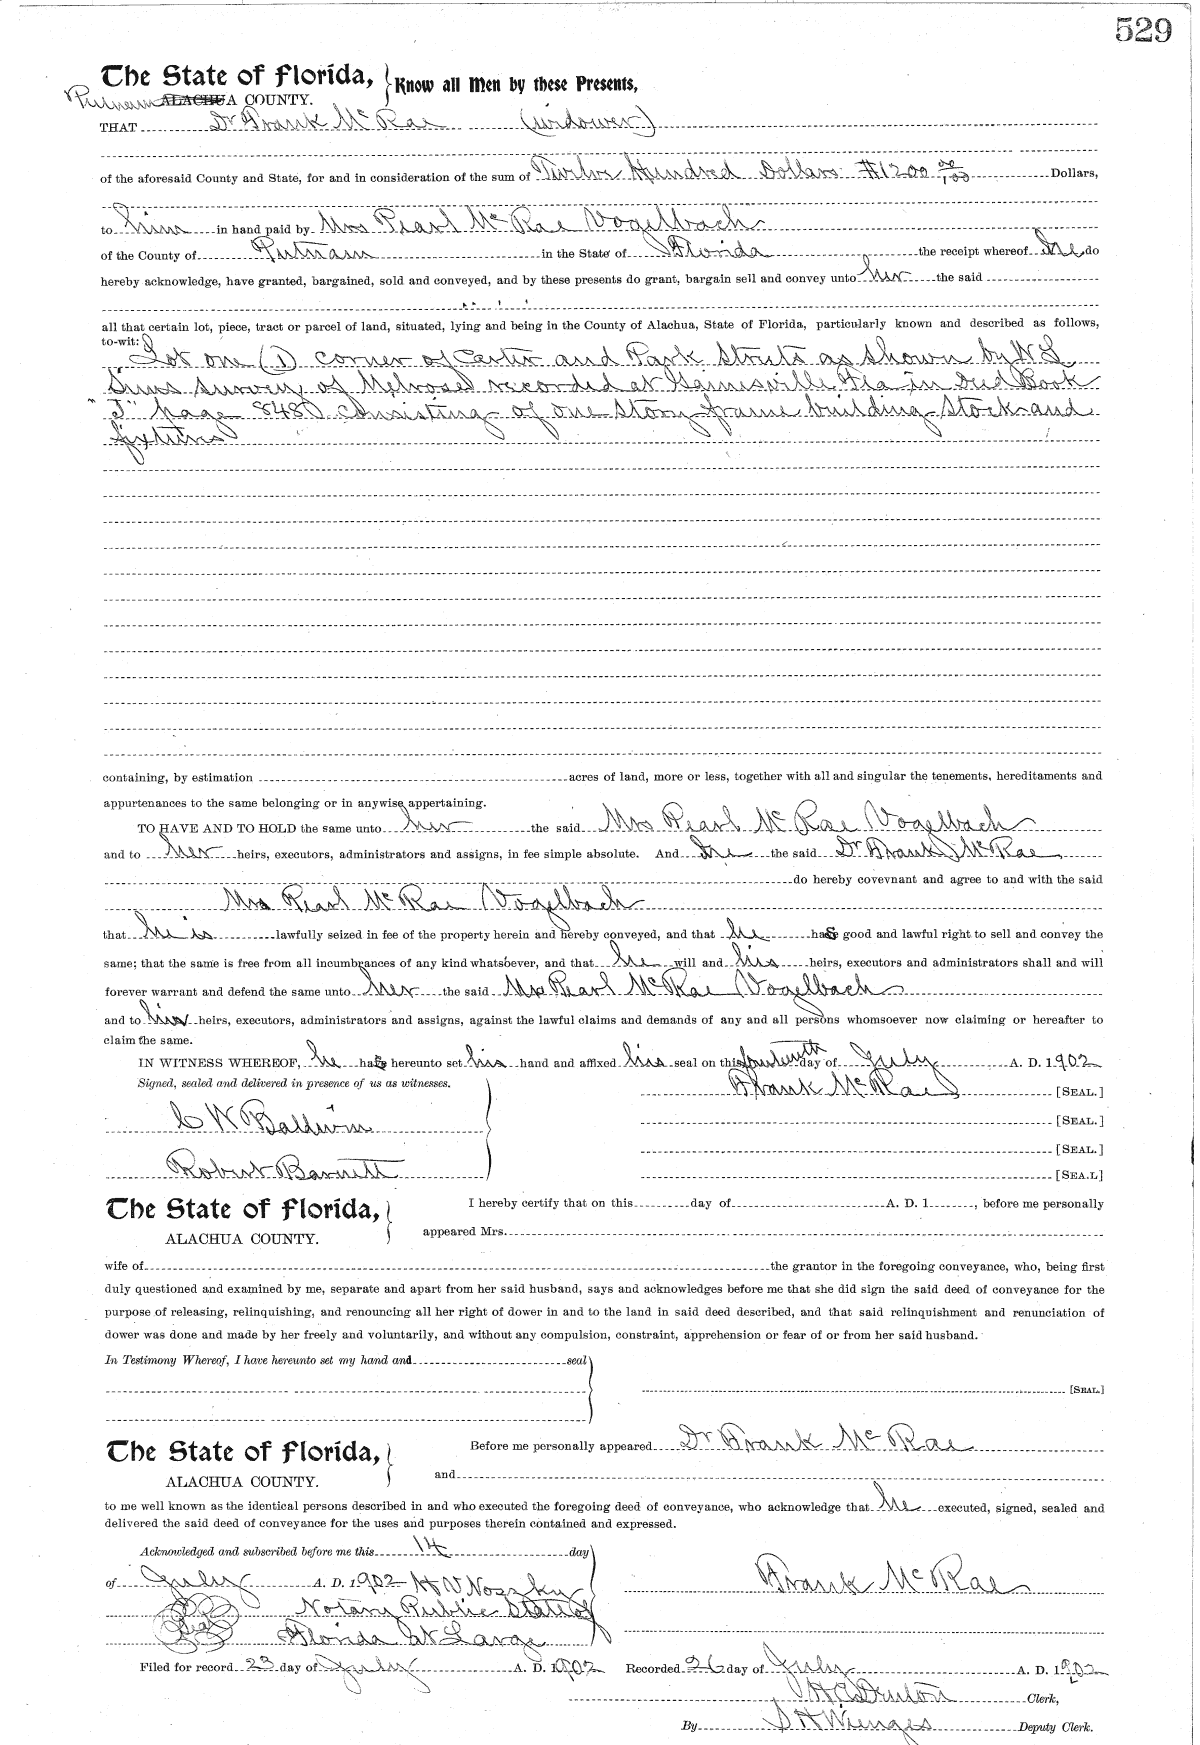 529
The State of Florida, Know all Men by these Presents,
Putnam ALACHUA COUNTY.
THAT Dr Frank McRae (widower)
of the aforesaid County and State, for and in consideration of the sum of Twelve Hundred Dollars #1200 00/100 Dollars,
to him in hand paid by Mrs Pearl McRae Vogelbach
of the County of Putnam in the State of Florida the receipt whereof he do
hereby acknowledge, have granted, bargained, sold and conveyed, and by these presents do grant, bargain sell and convey unto her the said
all that certain lot, piece, tract or parcel of land, situated, lying and being in the County of Alachua, State of Florida, particularly known and described as follows,
to-wit:
Lot one (1) corner of Center and Park Streets as shown by W L
Sims survey of Melrose recorded at Gainesville Fla in Deed Book
"J" page 848 consisting of one story frame building stock and
fixtures
containing, by estimation acres of land, more or less, together with all and singular the tenements, hereditaments and
appurtenances to the same belonging or in anywise appertaining.
TO HAVE AND TO HOLD the same unto her the said Mrs Pearl McRae Vogelbach
and to her heirs, executors, administrators and assigns, in fee simple absolute. And he the said Dr Frank McRae
do hereby covevnant and agree to and with the said
Mrs Pearl McRae Vogelbach
that he is lawfully seized in fee of the property herein and hereby conveyed, and that he has good and lawful right to sell and convey the
same; that the same is free from all incumbrances of any kind whatsoever, and that he will and his heirs, executors and administrators shall and will
forever warrant and defend the same unto her the said Mrs Pearl McRae Vogelbach
and to his heirs, executors, administrators and assigns, against the lawful claims and demands of any and all persons whomsoever now claiming or hereafter to
claim the same.
IN WITNESS WHEREOF, he has hereunto set his hand and affixed his seal on this fourteenth day of July A. D. 1902
Signed, sealed and delivered in presence of us as witnesses. Frank McRae [SEAL.]
C W Baldwin [SEAL.]
[SEAL.]
Robert Barnett [SEA.L]
The State of Florida, I hereby certify that on this day of A. D. 1 , before me personally
ALACHUA COUNTY. appeared Mrs.
wife of the grantor in the foregoing conveyance, who, being first
duly questioned and examined by me, separate and apart from her said husband, says and acknowledges before me that she did sign the said deed of conveyance for the
purpose of releasing, relinquishing, and renouncing all her right of dower in and to the land in said deed described, and that said relinquishment and renunciation of
dower was done and made by her freely and voluntarily, and without any compulsion, constraint, apprehension or fear of or from her said husband.
In Testimony Whereof, I have hereunto set my hand and seal
[SEAL.]
The State of Florida, Before me personally appeared Dr Frank McRae
ALACHUA COUNTY. and
to me well known as the identical persons described in and who executed the foregoing deed of conveyance, who acknowledge that he executed, signed, sealed and
delivered the said deed of conveyance for the uses and purposes therein contained and expressed.
Acknowledged and subscribed before me this 14 day
of July A. D. 1902 H V Frank McRae
Notary Public State of
Seal Florida at Large
Filed for record 23 day of July A. D. 1902 Recorded 26 day of July A. D. 1902
Clerk,
By S H Wienges Deputy Clerk.